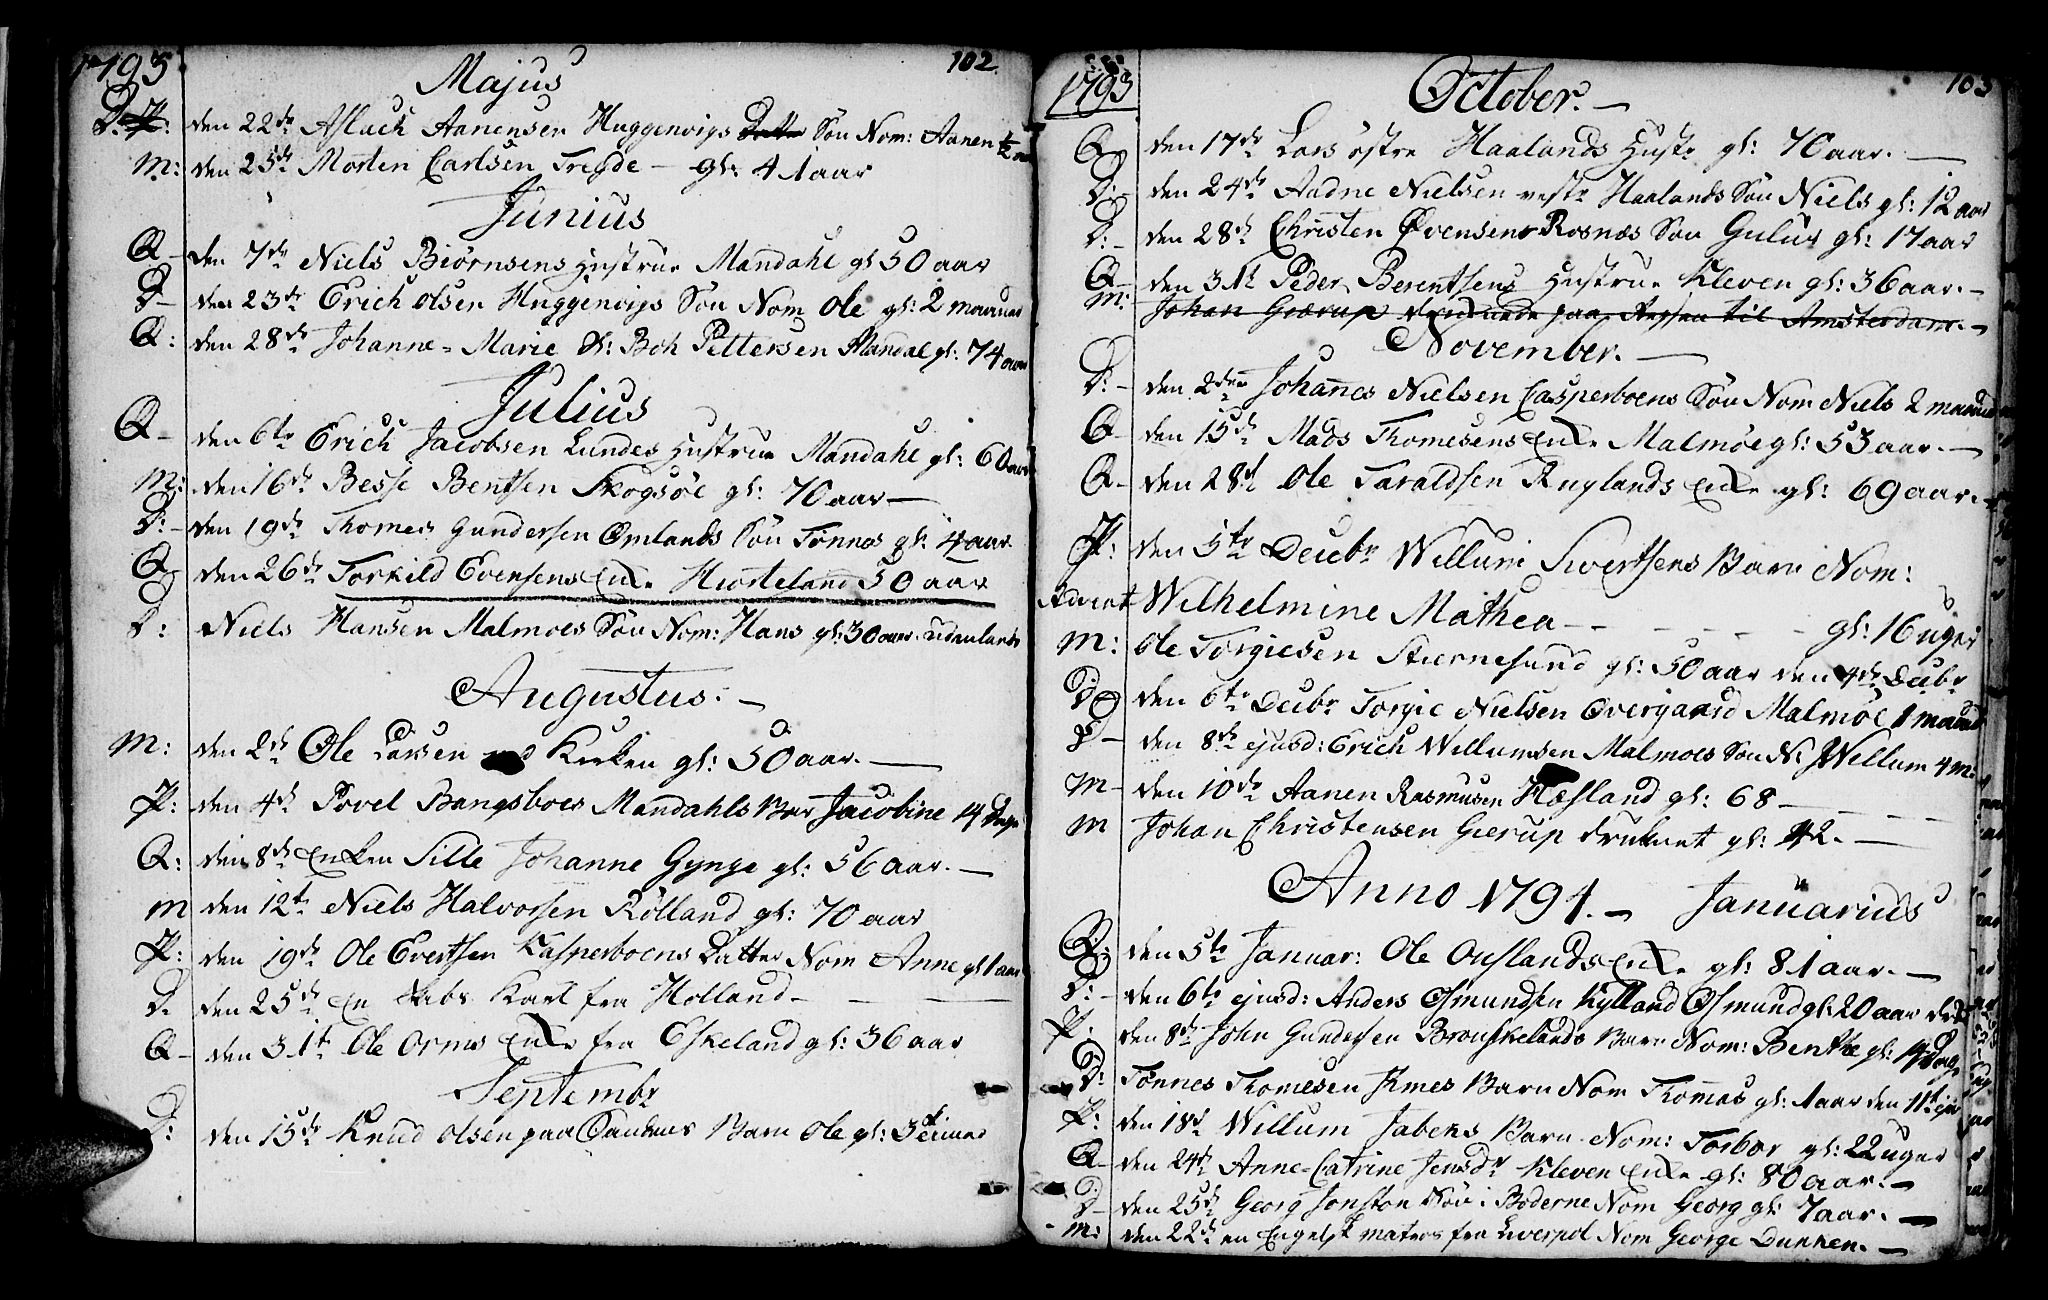 1793 Majus 102
D: den 22de Aslach Aanensen Huggenvigs Datter Søn Nom: Aanen 1/2
M: den 25de Morten Carlsen Tregde - gl: 41 aar
Junius
Q - den 7de Niels Biørnsens Hustrue Mandahl gl 50 aar
D - den 23de Erich Olsen Huggenvigs Søn Nom Ole gl: 2 maaneder
Q: den 28de Johanne-Marie Boh Pettersen Mandal gl: 74 aar
Julius
Q - den 6te Erich Jacobsen Lundes Hustrue Mandahl gl: 60 aar
M: den 16de Besse Bentsen Skogsøe gl: 70 aar —
D: - den 19de Thomas Gundersen Ømlands Søn Tønnes gl: 4 aar
Q - den 26de Torkild Evensens Enke Hiorteland 50 aar
D: Niels Hansen Malmøes Søn Nom: Hans gl: 30 aar. udenlands
Augustus: —
M: den 2de Ole Larsen ved Kirken gl: 50 aar. —
P: den 4de Povel Bangsboes Mandahls Bar Jacobine 14 Dage
Q: den 8de Enken Sille Johanne Gynge gl: 56 aar. —
M den 12te Niels Halvorsen Rølland gl: 70 aar
P: den 19de Ole Evertsen Kasperboens Datter Nom Anne gl 1 aar
D. den 25de En Karl fra Holland - — —
Q - den 31te Ole Orms Enke fra Eskeland gl: 36 aar
Septembr
D: den 15de Knud Olsen paa Barn Ole gl: 3
1793 October. — 103
Q - den 17de Lars østre Haalands Hustr gl: 70 aar. —
D: - den 24de Audne Nielsen vestr Haalands Søn Niels gl: 12 aar
D: - den 28de Christen Øvensen Rosnæs Søn Gulus gl: 17 aar
Q - den 31te Peder Berentsens Hustrue Kleven gl: 36 aar. -
M: Johan Gierup druknede paa Reysen til Amsterdam. -
November. —
D: - den 2den Johannes Nielsen Casperboens Søn Nom Niels 2 maaneder
Q - den 15de Mads Thomesens Enke Malmøe gl: 53 aar. —
Q - den 28de Ole Taraldsen Ruglands Enke gl: 69 aar. -
P: den 5te Decbr Willum Sivertsens Barn Nom:
Advent Wilhelmine Mathea - - - - - gl: 16 uger
M: Ole Torgiesen Stiernesund gl: 50 aar den 4de Decbr
D: den 6te Decbr Torgie Nielsen Øvergaard Malmøe 1 maaned
D - den 8de ejusd: Erich Willumsen Malmøes Søn N: Willum 4 M:
M - den 10de Aanen Rasmusen Hæsland gl: 68 — — —
M Johan Christensen Gierup druknet gl: 42. —
Anno 1794. - Januarius
Q: den 5te Januar: Ole Ouslands Enke gl: 81 aar. —
D: - den 6te ejusd: Anders Osmundsen Kylland Osmund gl: 20 aar
P. den 8de John Gundersen Brouskelands Barn Nom: Benthe gl: 14 Dage
D: Tønnes Thomesen Imes Barn Nom Thomas gl: 1 aar den 11te
P: den 18de Willum Jabens Barn Nom: Torbor gl: 22 uger
Q - den 24de Anne-Catrine Jensdr Kleven Enke gl: 80 aar. -
D - den 25de Georg Jonston Søn i Boderne Nom Georg gl: 7 aar. —
M: den 22de en Engelsk matros fra Liverpol Nom George Dunken. —